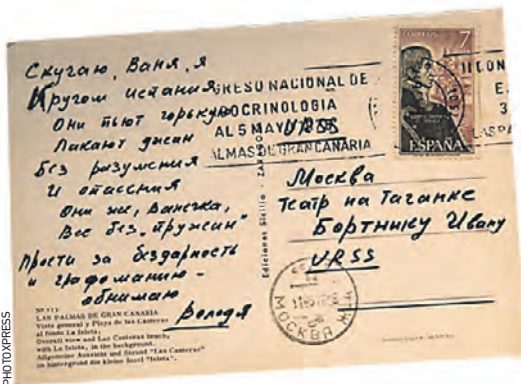 Скучаю, Ваня, я
Кругом Испания
Они пьют горькую
Лакают джин
Без разумения
И опасения
Они же, Ванечка,
Все без "пружин"
Прости за бездарность
и графоманию –
обнимаю
Володя
GRESO NACIONAL DE
DOCRINOLOGIA
AL 5 MAYO
ALMAS DE GRAN CANARIA
CORREOS 7
ESPAÑA
URSS
Москва
Театр на Таганке
Бортнику Ивану
URSS
МОСКВА
Ediciones Sicilia
LAS PALMAS DE GRAN CANARIA
Vista general y Playa de las Canteras
al fondo La Isleta.
Overall view and Las Canteras beach,
with La Isleta, in the background.
Allgemeine Aussicht und Strand "Las Canteras"
im hintergrund die kleine Insel "Isleta".
PHOTOXPRESS